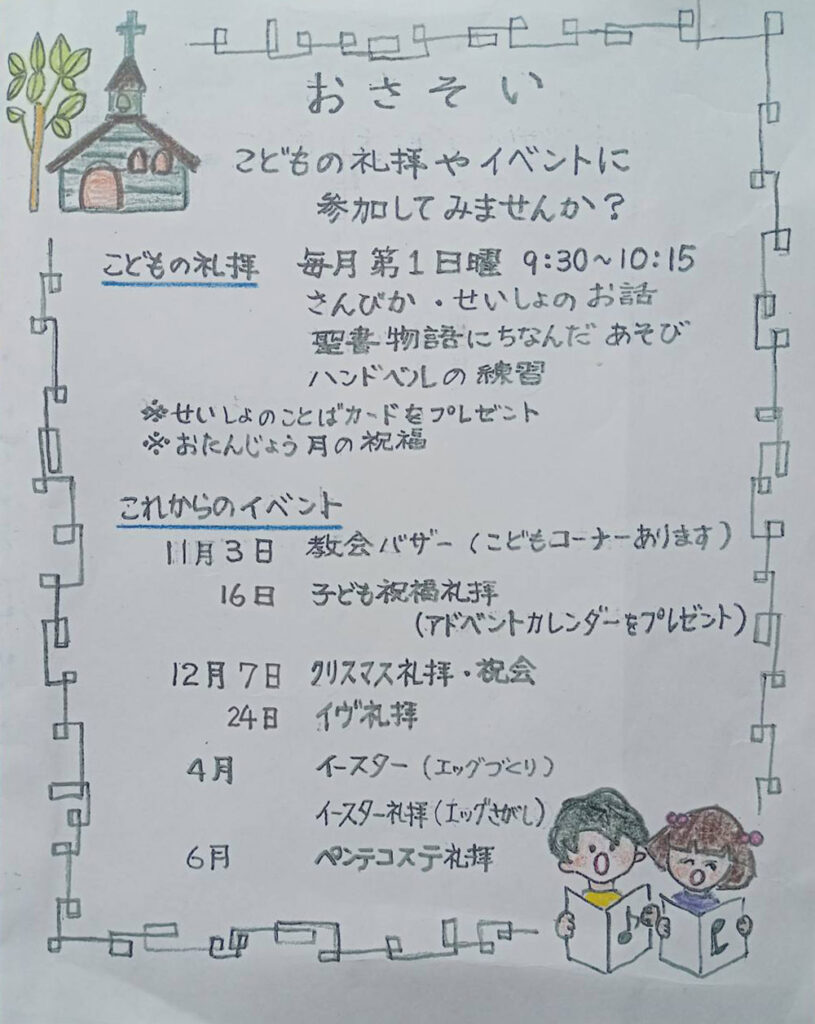 おさそい
こどもの礼拝やイベントに
参加してみませんか?
こどもの礼拝 毎月第1日曜 9:30~10:15
さんびか・せいしょのお話
聖書物語にちなんだあそび
ハンドベルの練習
※せいしょのことばカードをプレゼント
※おたんじょう月の祝福
これからのイベント
11月3日 教会バザー(こどもコーナーあります)
16日 子ども祝福礼拝
(アドベントカレンダーをプレゼント)
12月7日 クリスマス礼拝・祝会
24日 イヴ礼拝
4月 イースター(エッグづくり)
イースター礼拝(エッグさがし)
6月 ペンテコステ礼拝